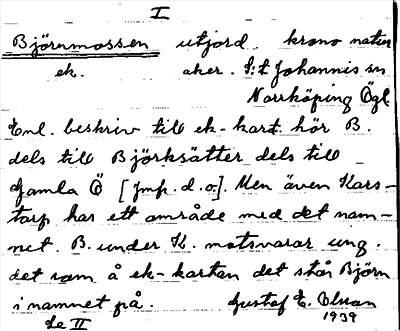 I
Björnmossen utjord krono natur
ek. åker. S:t Johannis sn
Norrköping Ögl
Enl. beskriv till ek-kart. hör B.
dels till Björksätter dels till
Gamla Ö [Jmf. d.o.]. Men även Kars-
torp har ett område med det nam-
net. B. under K. motsvarar ung.
det som å ek-kartan det står Björn
i namnet på. Gustaf E. Olsson
Se II 1939